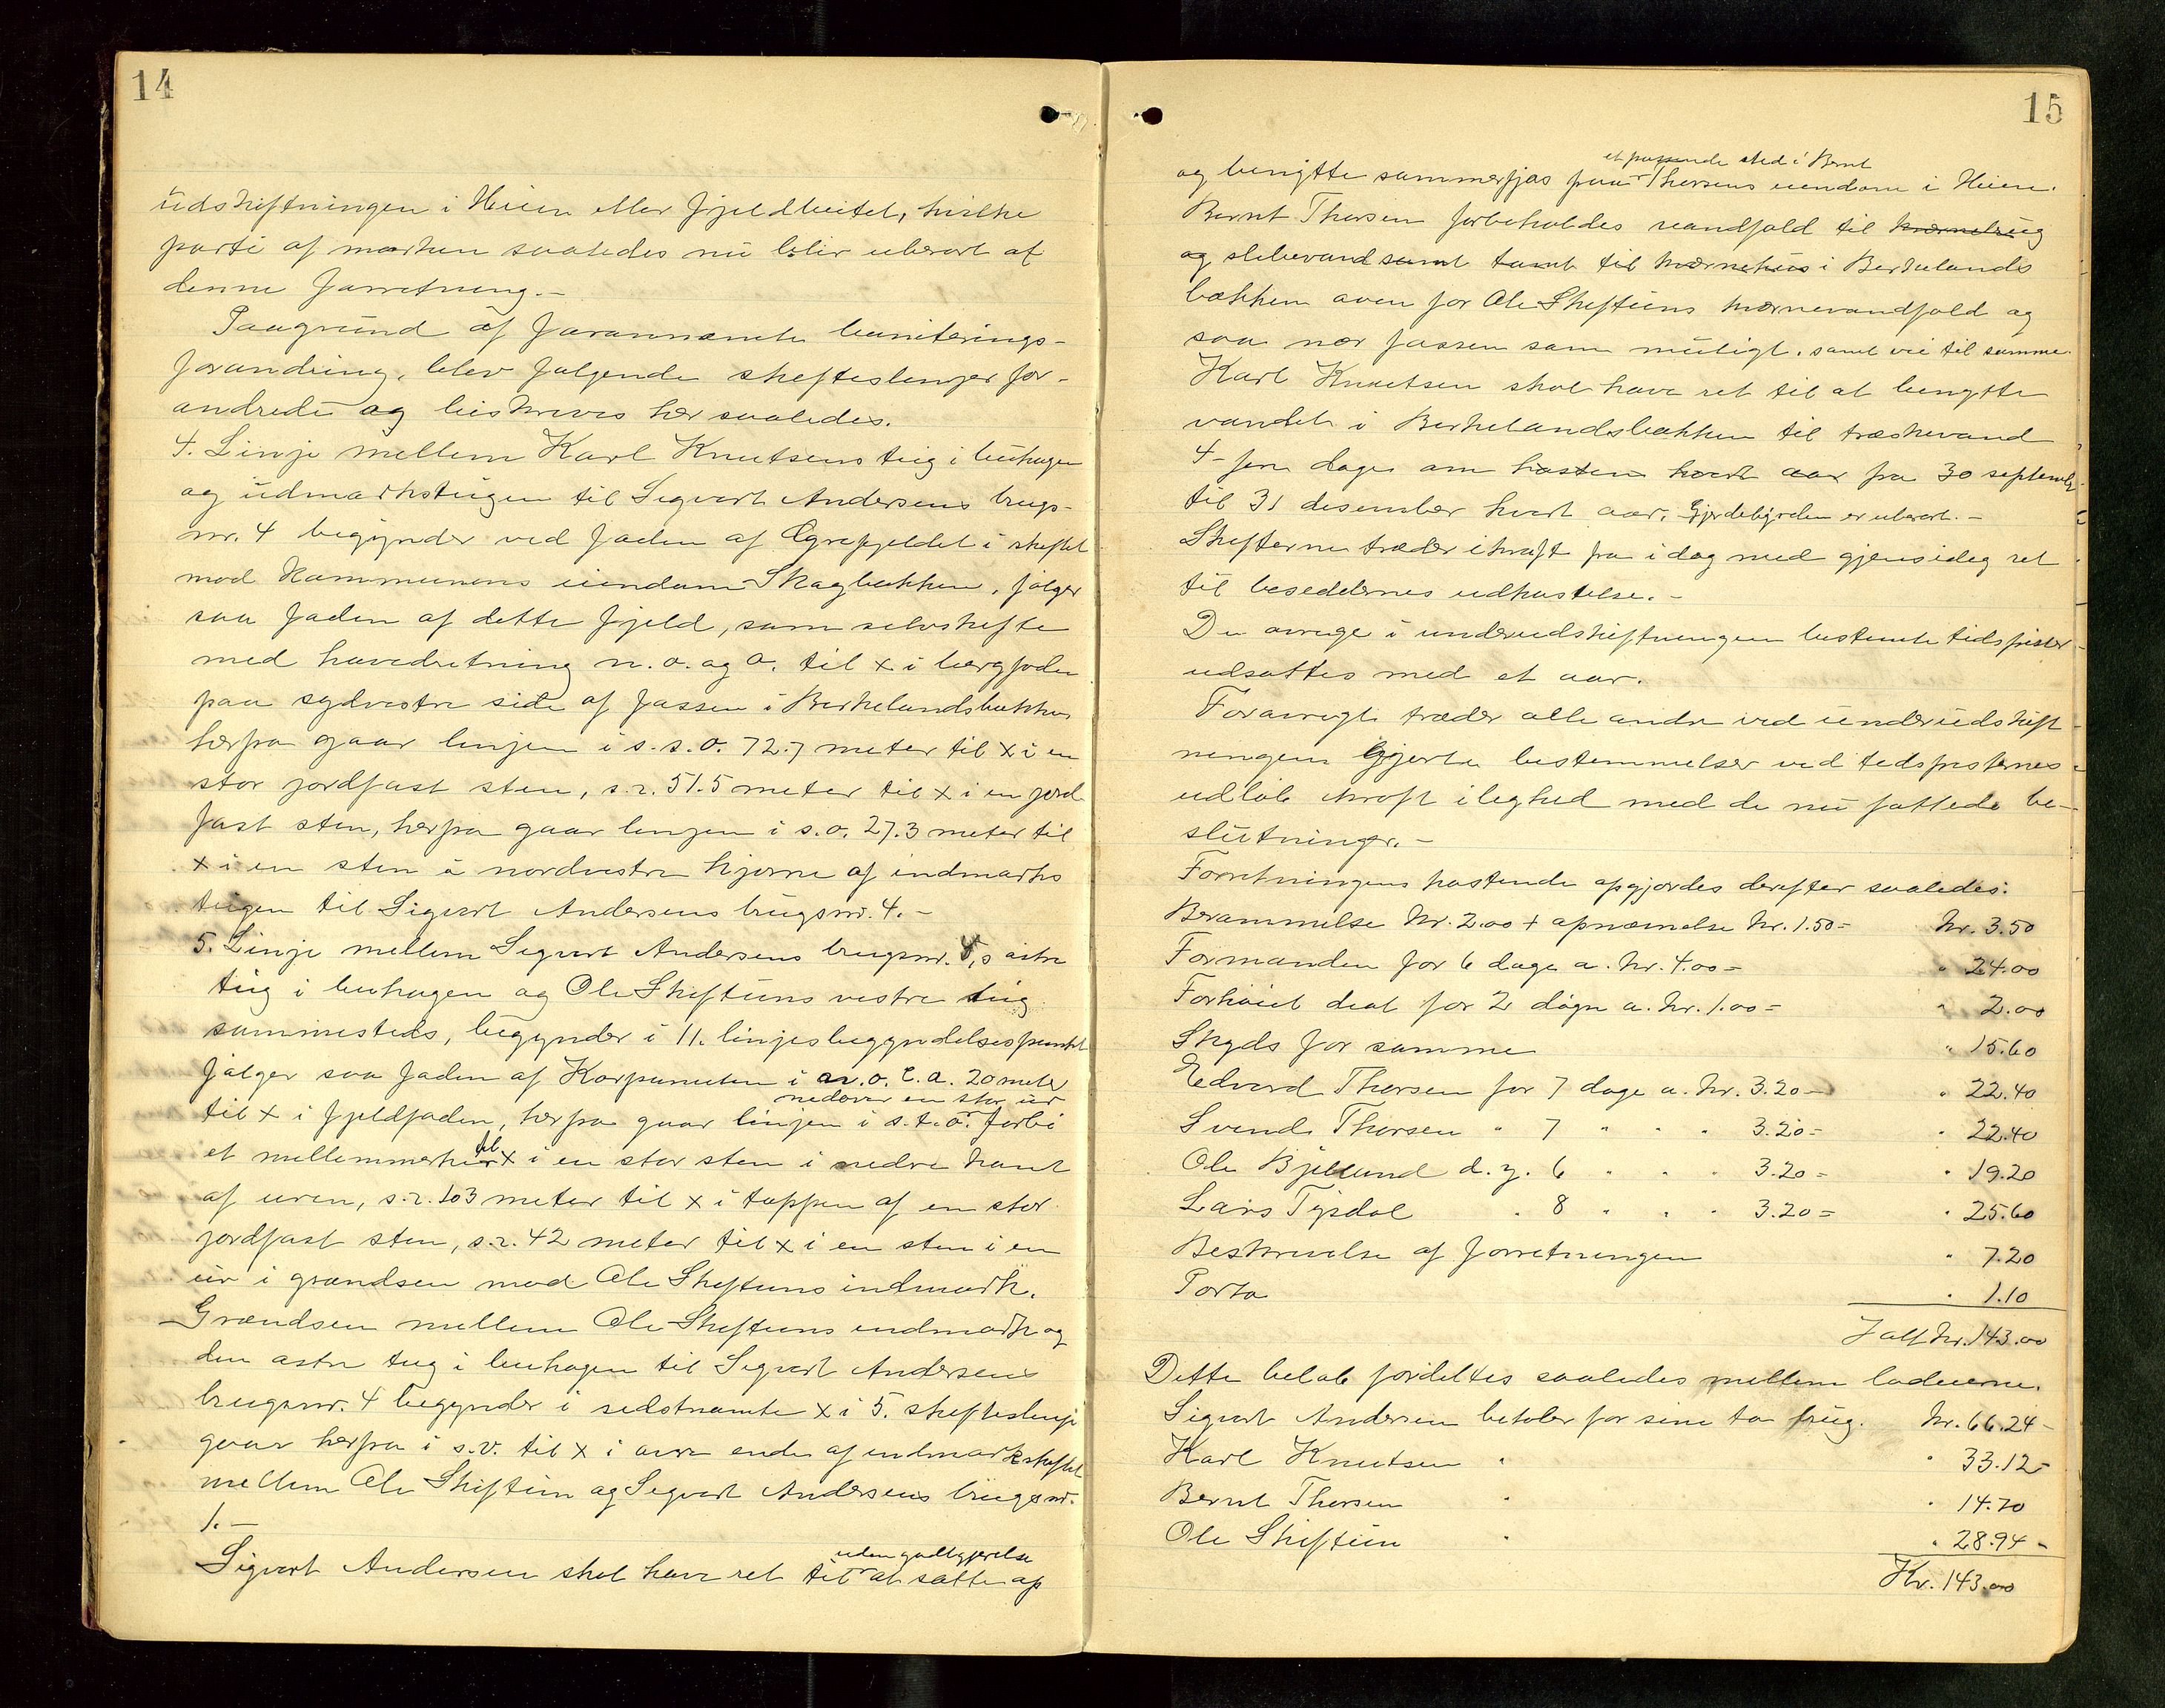 14
udskiftningen i Heien eller fjeldbeitet, hvilke
parti af marken saaledes nu blir uberørt af
denne forretning.-
Paagrund af forannævnte boniterings-
forandring, blev følgende skifteslinjer for-
andrede og beskrives her saaledes.
4. Linje mellem Karl Knutsens teig i buhagen
og udmarksteigen til Sigvart Andersens brugs-
nr. 4 begynder ved foden af Øgrefjeldet i skiftet
mod Kommunens eiendom Skagbakken, følger
saa foden af dette fjeld, som selvskifte
med hovedretning n.o. og o. til x i bergfoden
paa sydvestre side af fossen i Berkelandsbækken
herfra gaar linjen i s.s.o. 72.7 meter til x i en
stor jordfast sten, s.r. 51.5 meter til x i en jord-
fast sten, herfra gaar linjen i s.o. 27.3 meter til
x i en sten i nordvestre hjørne af indmarks
teigen til Sigvart Andersens brugsnr. 4.-
5. Linje mellem Sigvart Andersens brugsnr. 4,s østre
teig i buhagen og Ole Skiftuns vestre teig
sammesteds, begynder i 11. linjes begyndelsespunkt
følger saa foden af Korpanuten i n.o. c.a. 20 meter
nedover en stor ur
til x i fjeldfoden, herfra gaar linjen i s.t.o. forbi
et mellemmerke til x i en stor sten i nedre kant
af uren, s.r. 103 meter til x i toppen af en stor
jordfast sten, s.r. 42 meter til x i en sten i en
ur i grændsen mod Ole Skiftuns indmark.
Grændsen mellem Ole Skiftuns indmark og
den østre teig i buhagen til Sigvart Andersens
brugsnr. 4 begynder i sidstnævnte x i 5. skifteslinje
gaar herfra i s.v. til x i øvre ende af indmarkskiftet
mellem Ole Skiftun og Sigvart Andersens brugsnr.
1.-
uden godtgjørelse
Sigvart Andersen skal have ret til at sætte op
15
et passende sted i Bernt
og benytte sommerfjøs paa Thorsens eiendom i Heien.
Bernt Thorsen forbeholdes vandfald til kværnebrug
og slibevand samt tomt til kværnehus i Berkelands
bækken oven for Ole Skiftuns kværnevandfald og
saa nær fossen som muligt. samt vei til samme.
Karl Knutsen skal have ret til at benytte
vandet i Berkelandsbækken til træskevand
4- fire dager om høsten hvert aar fra 30 september
til 31 desember hvert aar. Gjerdebyrden er uberørt.-
Skifterne træder i kraft fra i dag med gjensidig ret
til besæddernes udhøstelse.-
De øvrige i underudskiftningen bestemte tidsfrister
udsættes med et aar.
Forøvrigt træder alle andre ved underudskift-
ningen gjorte bestemmelser ved tidsfristernes
udløb i kraft i lighed med de nu fattede be-
slutninger.-
Forretningens kostende opgjordes derefter saaledes:
Berammelse kr. 2.00 + opnæmelse kr. 1.50 = kr. 3.50
Formanden for 6 dage a. kr. 4.00 = " 24.00
Forhøiet diæt for 2 døgn a. kr. 1.00 = " 2.00
Skyds for samme " 15.60
Edvard Thorsen for 7 dage a. kr. 3.20 = " 22.40
Svend Thorsen " 7 " " " 3.20 = " 22.40
Ole Bjelland d.y. 6 " " " 3.20 = " 19.20
Lars Tysdal " 8 " " " 3.20 = " 25.60
Beskrivelse af forretningen " 7.20
Porto " 1.10
Ialt kr. 143.00
Dette beløb fordeltes saaledes mellem lodeierne.
Sigvart Andersen betaler for sine to brug. kr. 66.24-
Karl Knutsen " " 33.12-
Bernt Thorsen " " 14.70
Ole Skiftun " " 28.94-
Kr. 143.00